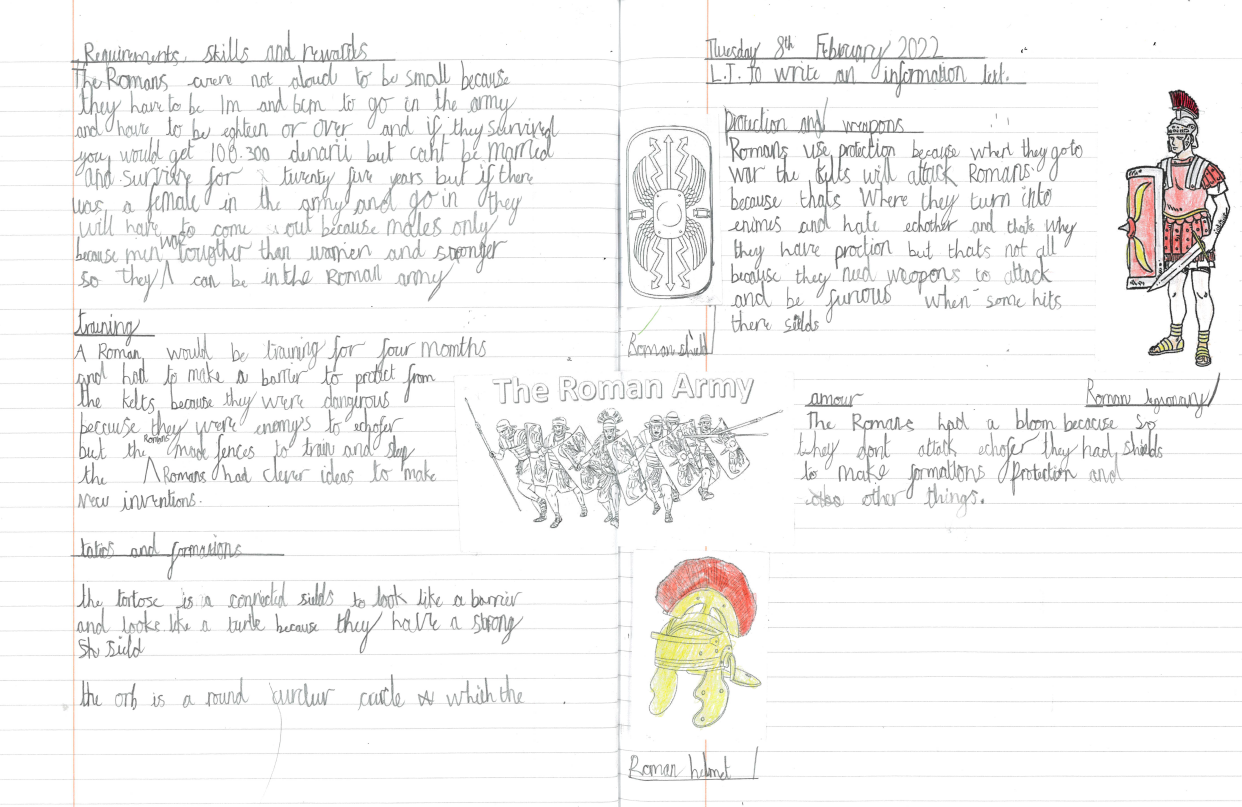 Requirements, skills and rewards
The Romans were not aloud to be small because
they have to be 1m and 6cm to go in the army
and have to be eghteen or over and if they survived
you would get 100.300 denarii but cant be married
and survive for twenty five years but if there
was a female in the army and go in they
will have to come out because males only
because men was tougher than women and
so they can be in the Roman army
training
A Roman would be training for four months
and had to make a barrier to protect from
the kelts because they were dangerous
because they were enemys to echofer
but the Romans made fences to train and stop
the Romans had clever ideas to make
new inventions.
tatics and formasions
the tortose is a connected sields to look like a barrier
and looks like a turtle because they have a strong
sh sield
the orb is a round circle which the
Tuesday 8th February 2022
L.I. to write an information text.
protection and weapons
Romans use protection because when they go to
war the kelts will attack Romans.
because thats where they turn into
enimes and hate echother and thats why
they have proction but thats not all
because they need weopons to attack
and be furious when some hits
there sields
Roman shield
The Roman Army
amour
Roman legionary
The Romans had a bloom because so
they dont attack echofer they had shields
to make formations protection and
other things.
Roman helmet